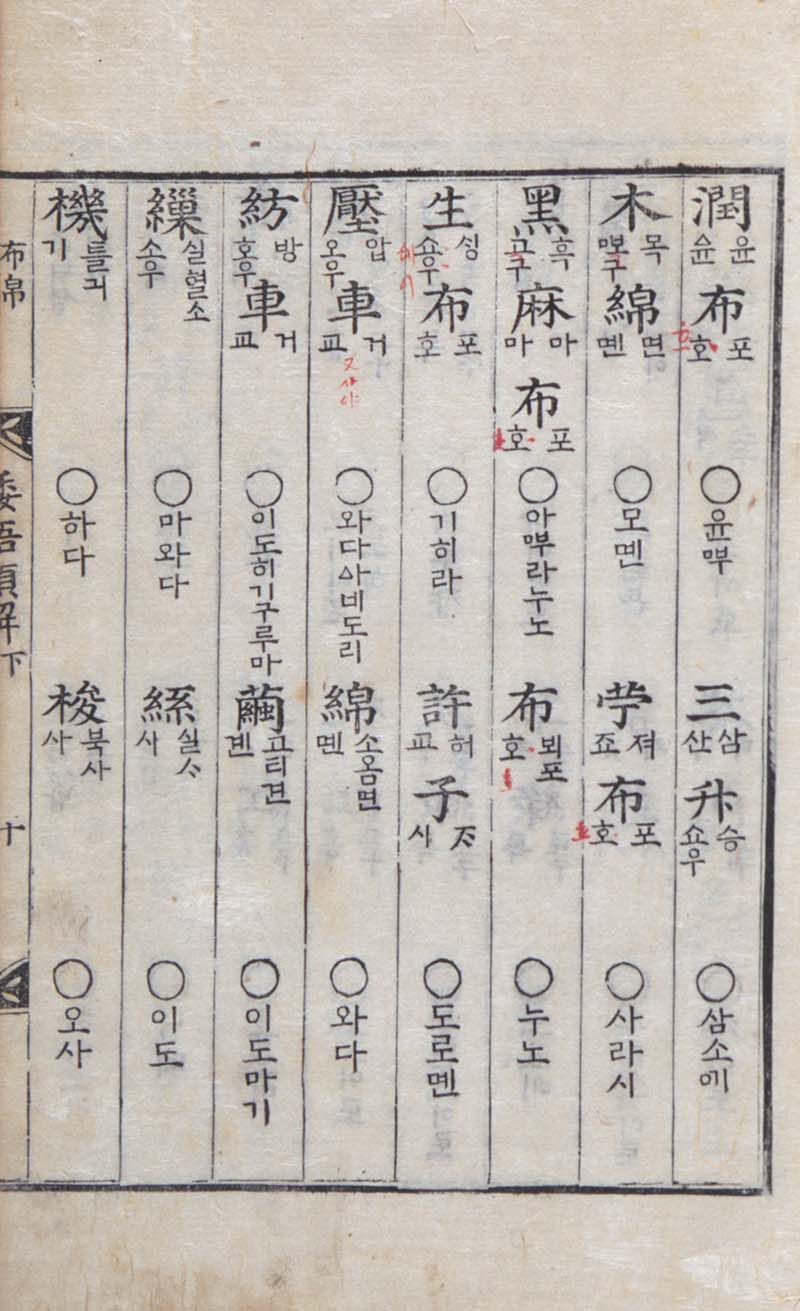 潤 윤 슌 布 포 호 ○윤ᄲᅮ 三 삼 산 升 승 쇼우 ○삼소ᄭᅦ
木 목 ᄲᅩ구 綿 면 몐 ○모몐 苧 져 죠 布 포 호 ○사라시
黑 흑 고구 麻 마 마 布 포 호 ○아ᄲᅮ라누노 布 뵈포 호 ○누노
生 ᄉᆡᆼ 쇼우 布 포 호 ○기히라 許 허 교 子 ᄌᆞ 시 ○도로멘
壓 압 오우 車 거 교 又사야 ○와다ᅀᅡ비도리 綿 소옴면 몐 ○와다
紡 방 호우 車 거 교 ○이도히기구루마 繭 고티견 겐 ○이도마기
繅 실혈소 소우 ○마와다 絲 실ᄉᆞ 시 ○이도
機 틀긔 기 ○하다 梭 북사 사 ○오사
布帛 倭語類解下 十